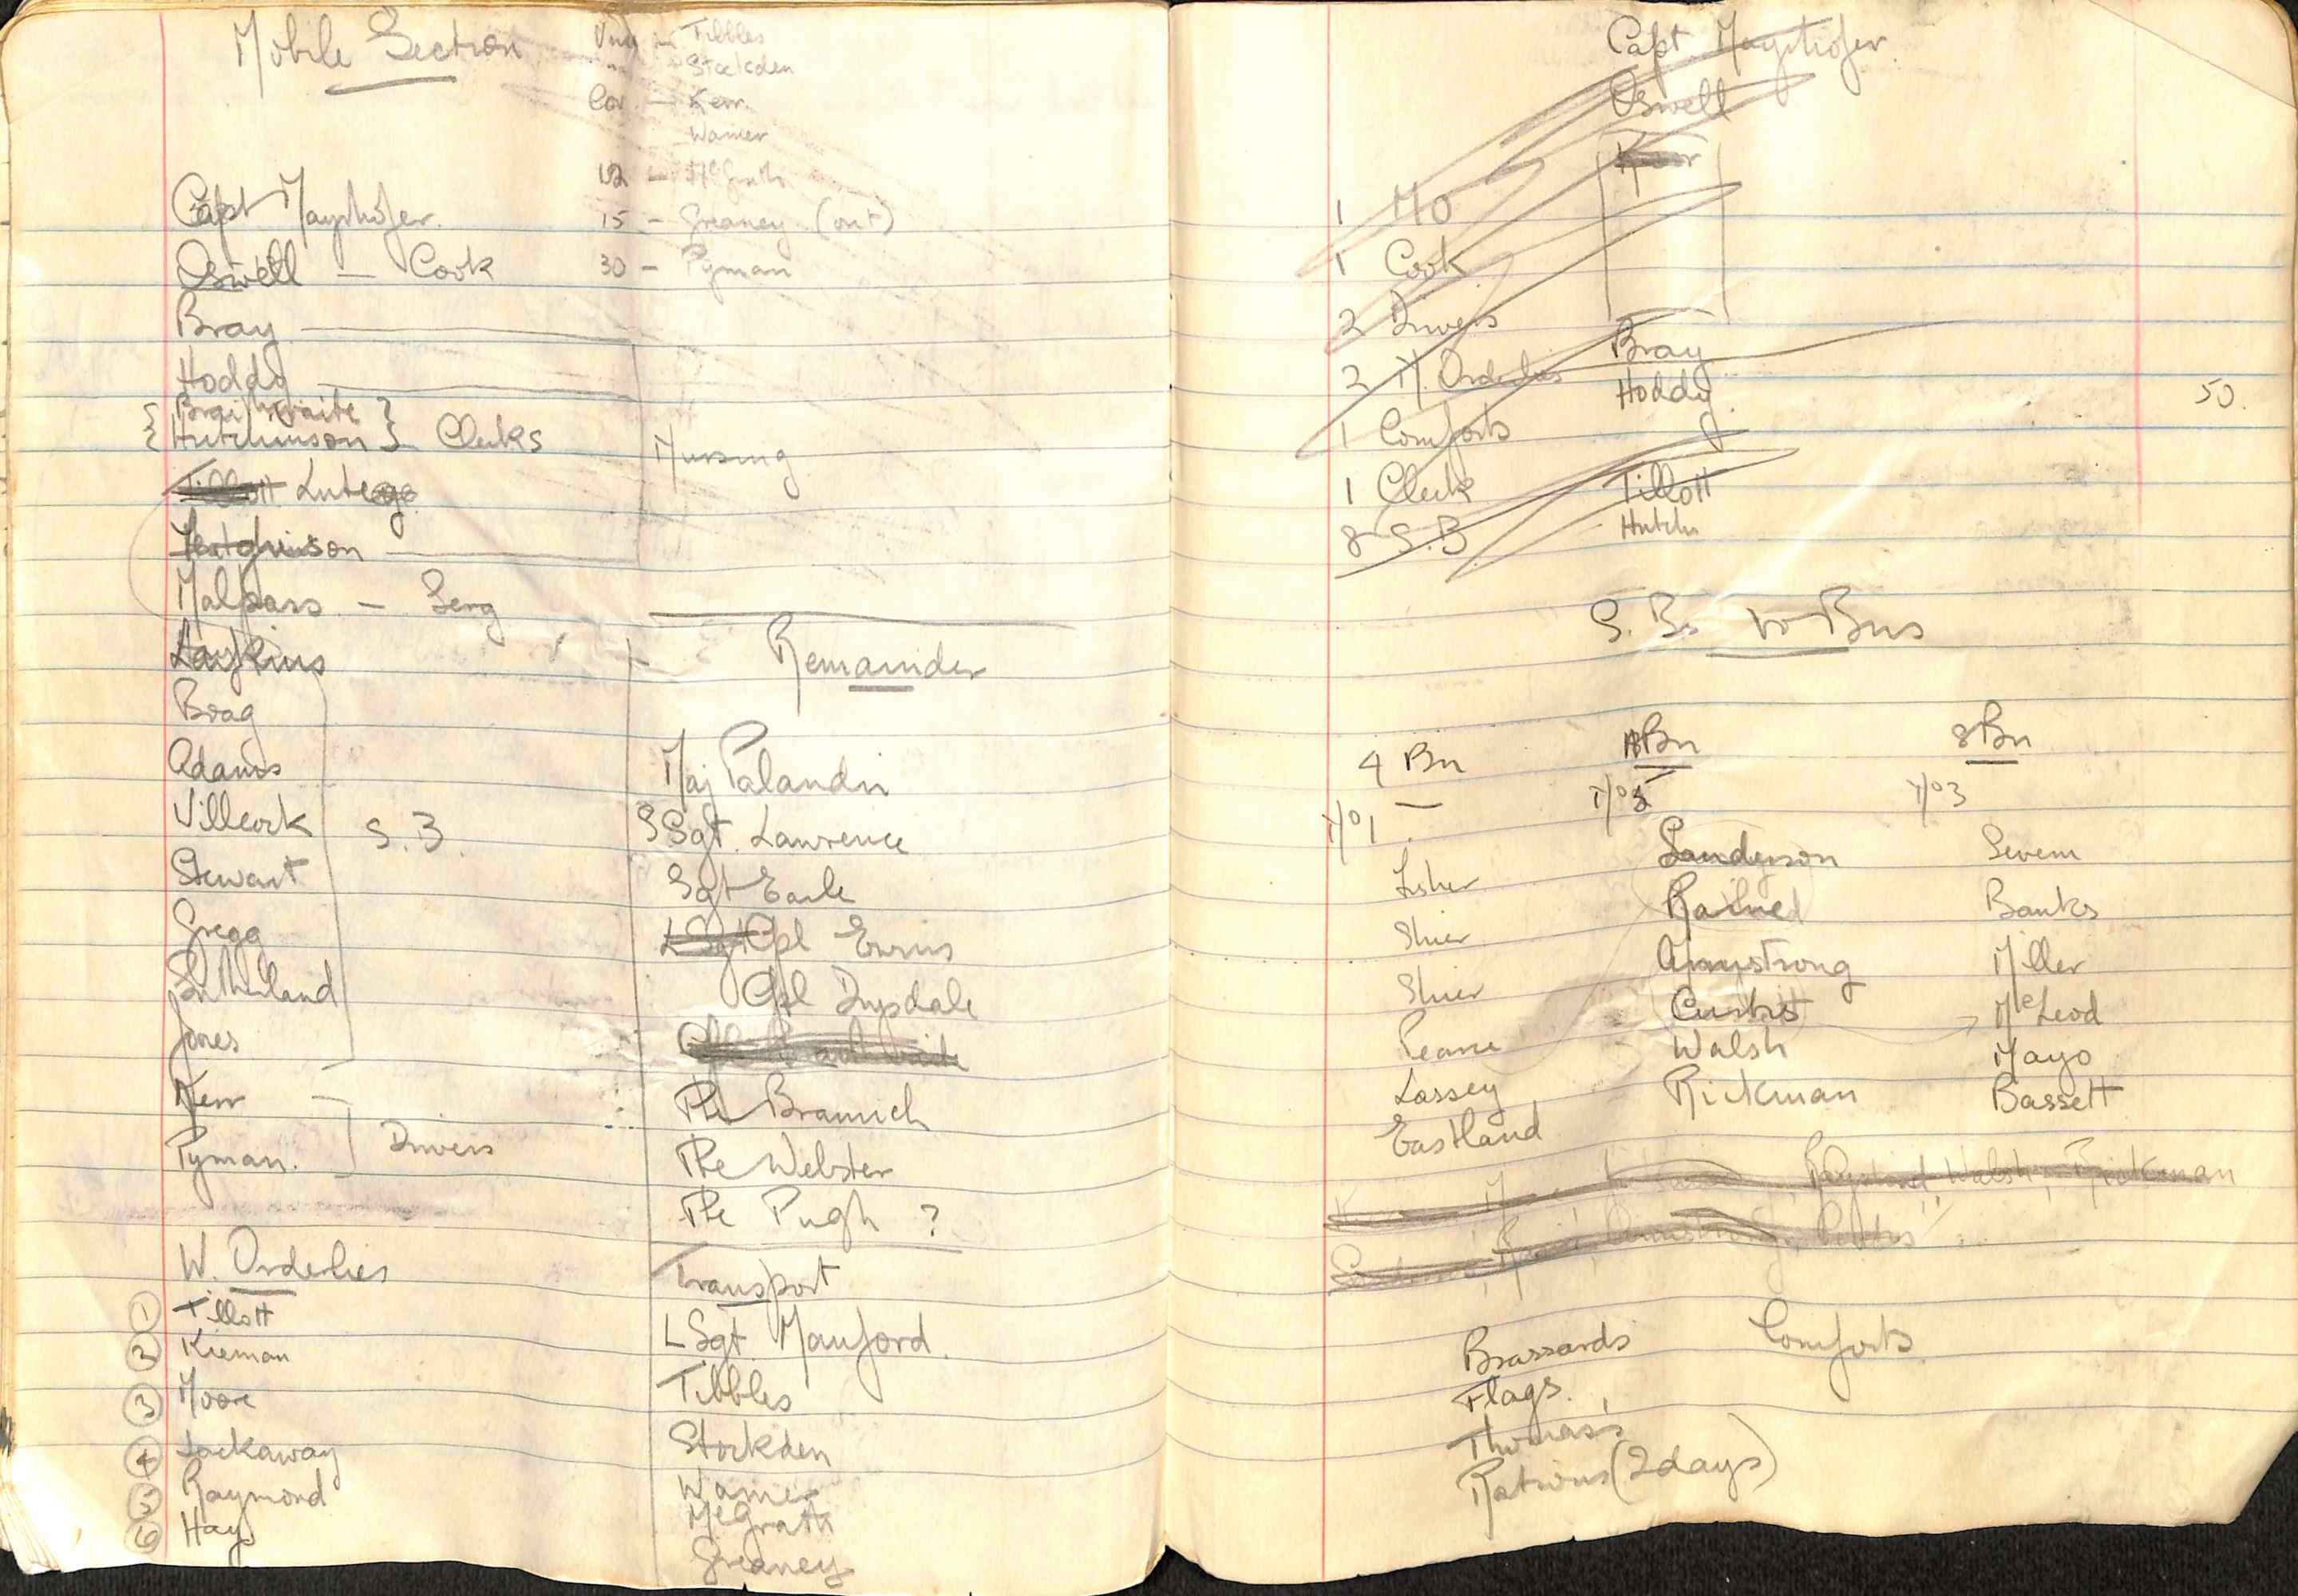 Mobile Section
Tibbles
Stockden
Kerr
Warner
McGrath
15 - Greaney (out)
30 - Pyman
Capt Mayrhofer.
Oswell — Cook
Bray
Hoddy
Braithwaite
Hutchinson } Clerks
Nursing
Tillott
Hutchinson
Malpass —
Bray
Adams
Villcock
S.B.
Stewart
Gregg
Sutherland
Jones
Kerr
Pyman.
Drivers
W. Orderlies
1 Tillott
2 Kiernan
3 Moore
4 Lackaway
5 Raymond
6 Hay
Remainder
Maj Palandri
SSgt. Lawrence
Sgt Earle
LSgt Cpl
Cpl Drysdale
Pte
Pte Webster
Pte Pugh ?
Transport
LSgt Manford.
Tibbles
Stockden
Warner
McGrath
Greaney
Capt Mayrhofer
Oswell
Kerr
1 MO
1 Cook
2 Drivers
2 N. Orderlies
Bray
Hoddy
50.
1 Comforts
1 Clerk
Tillott
8 S.B
Hutch
S.Bs to Bns
4 Bn
Bn
8 Bn
Fisher
Shier
Shier
Pearce
Lassey
Eastland
Sanderson
Raine
Armstrong
Curtis
Walsh
Rickman
Severn
Banks
Miller
McLeod
Mayo
Bassett
Raymond, Walsh, Rickman
Armstrong, Curtis
Brassards
Comforts
Flags.
Thomas's
Rations (2 days)